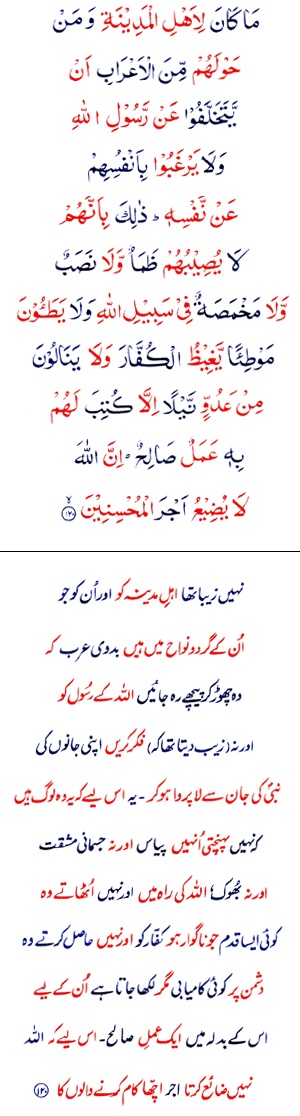 مَا كَانَ لِاَهْلِ الْمَدِيْنَةِ وَمَنْ
حَوْلَهُمْ مِّنَ الْاَعْرَابِ اَنْ
يَّتَخَلَّفُوْا عَنْ رَّسُوْلِ اللّٰهِ
وَلَا يَرْغَبُوْا بِاَنْفُسِهِمْ
عَنْ نَّفْسِهٖ ؕ ذٰلِكَ بِاَنَّهُمْ
لَا يُصِيْبُهُمْ ظَمَاٌ وَّلَا نَصَبٌ
وَّلَا مَخْمَصَةٌ فِيْ سَبِيْلِ اللّٰهِ وَلَا يَطَـُٔوْنَ
مَوْطِئًا يَّغِيْظُ الْكُفَّارَ وَلَا يَنَالُوْنَ
مِنْ عَدُوٍّ نَّيْلًا اِلَّا كُتِبَ لَهُمْ
بِهٖ عَمَلٌ صَالِحٌ ؕ اِنَّ اللّٰهَ
لَا يُضِيْعُ اَجْرَ الْمُحْسِنِيْنَ ﴿۱۲۰﴾
نہیں زیبا تھا اہلِ مدینہ کو اور اُن کو جو
اُن کے گردو نواح میں ہیں بدوی عرب کہ
وہ چھوڑ کر پیچھے رہ جائیں اللہ کے رسُول کو
اور نہ (زیب دیتا تھا کہ) فکر کریں اپنی جانوں کی
نبیؐ کی جان سے لا پروا ہو کر۔ یہ اس لیے کہ یہ وہ لوگ ہیں
کہ نہیں پہنچتی اُنہیں پیاس اور نہ جسمانی مشقت
اور نہ بُھوک اللہ کی راہ میں اور نہیں اُٹھاتے وہ
کوئی ایسا قدم جو ناگوار ہو کفّار کو اور نہیں حاصل کرتے وہ
دشمن پر کوئی کامیابی مگر لکھا جاتا ہے اُن کے لیے
اس کے بدلہ میں ایک عملِ صالح۔ اس لیے کہ اللہ
نہیں ضائع کرتا اجر اچھا کام کرنے والوں کا ﴿۱۲۰﴾